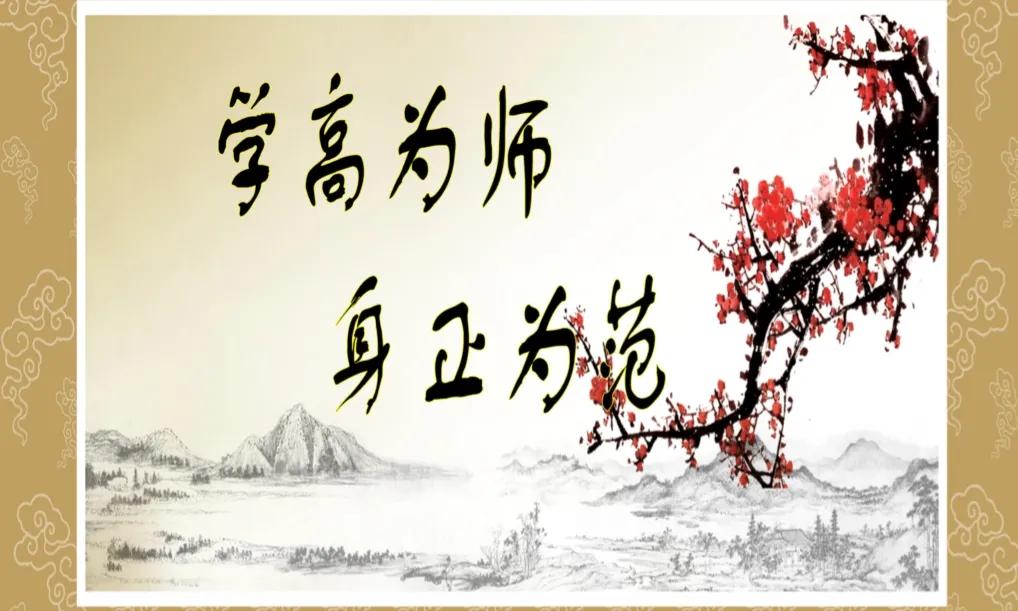 学高为师
身正为范